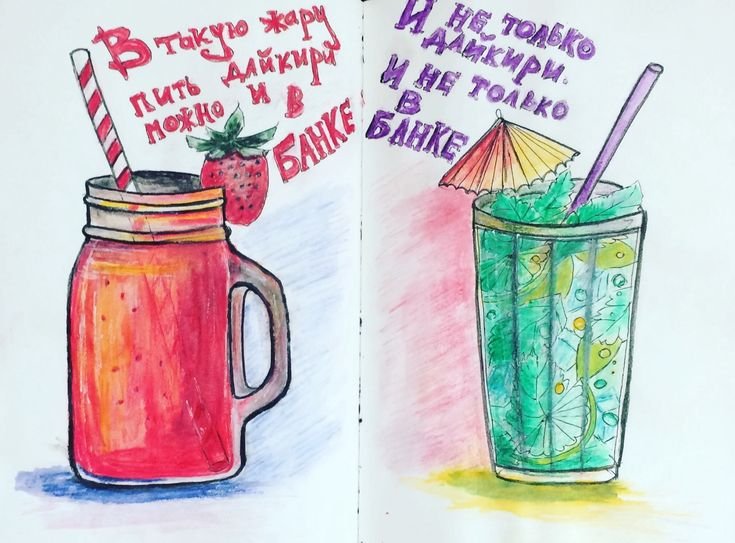 В такую жару
пить дайкири
можно и в
БАНКЕ
И не только
дайкири.
И не только
в
БАНКЕ